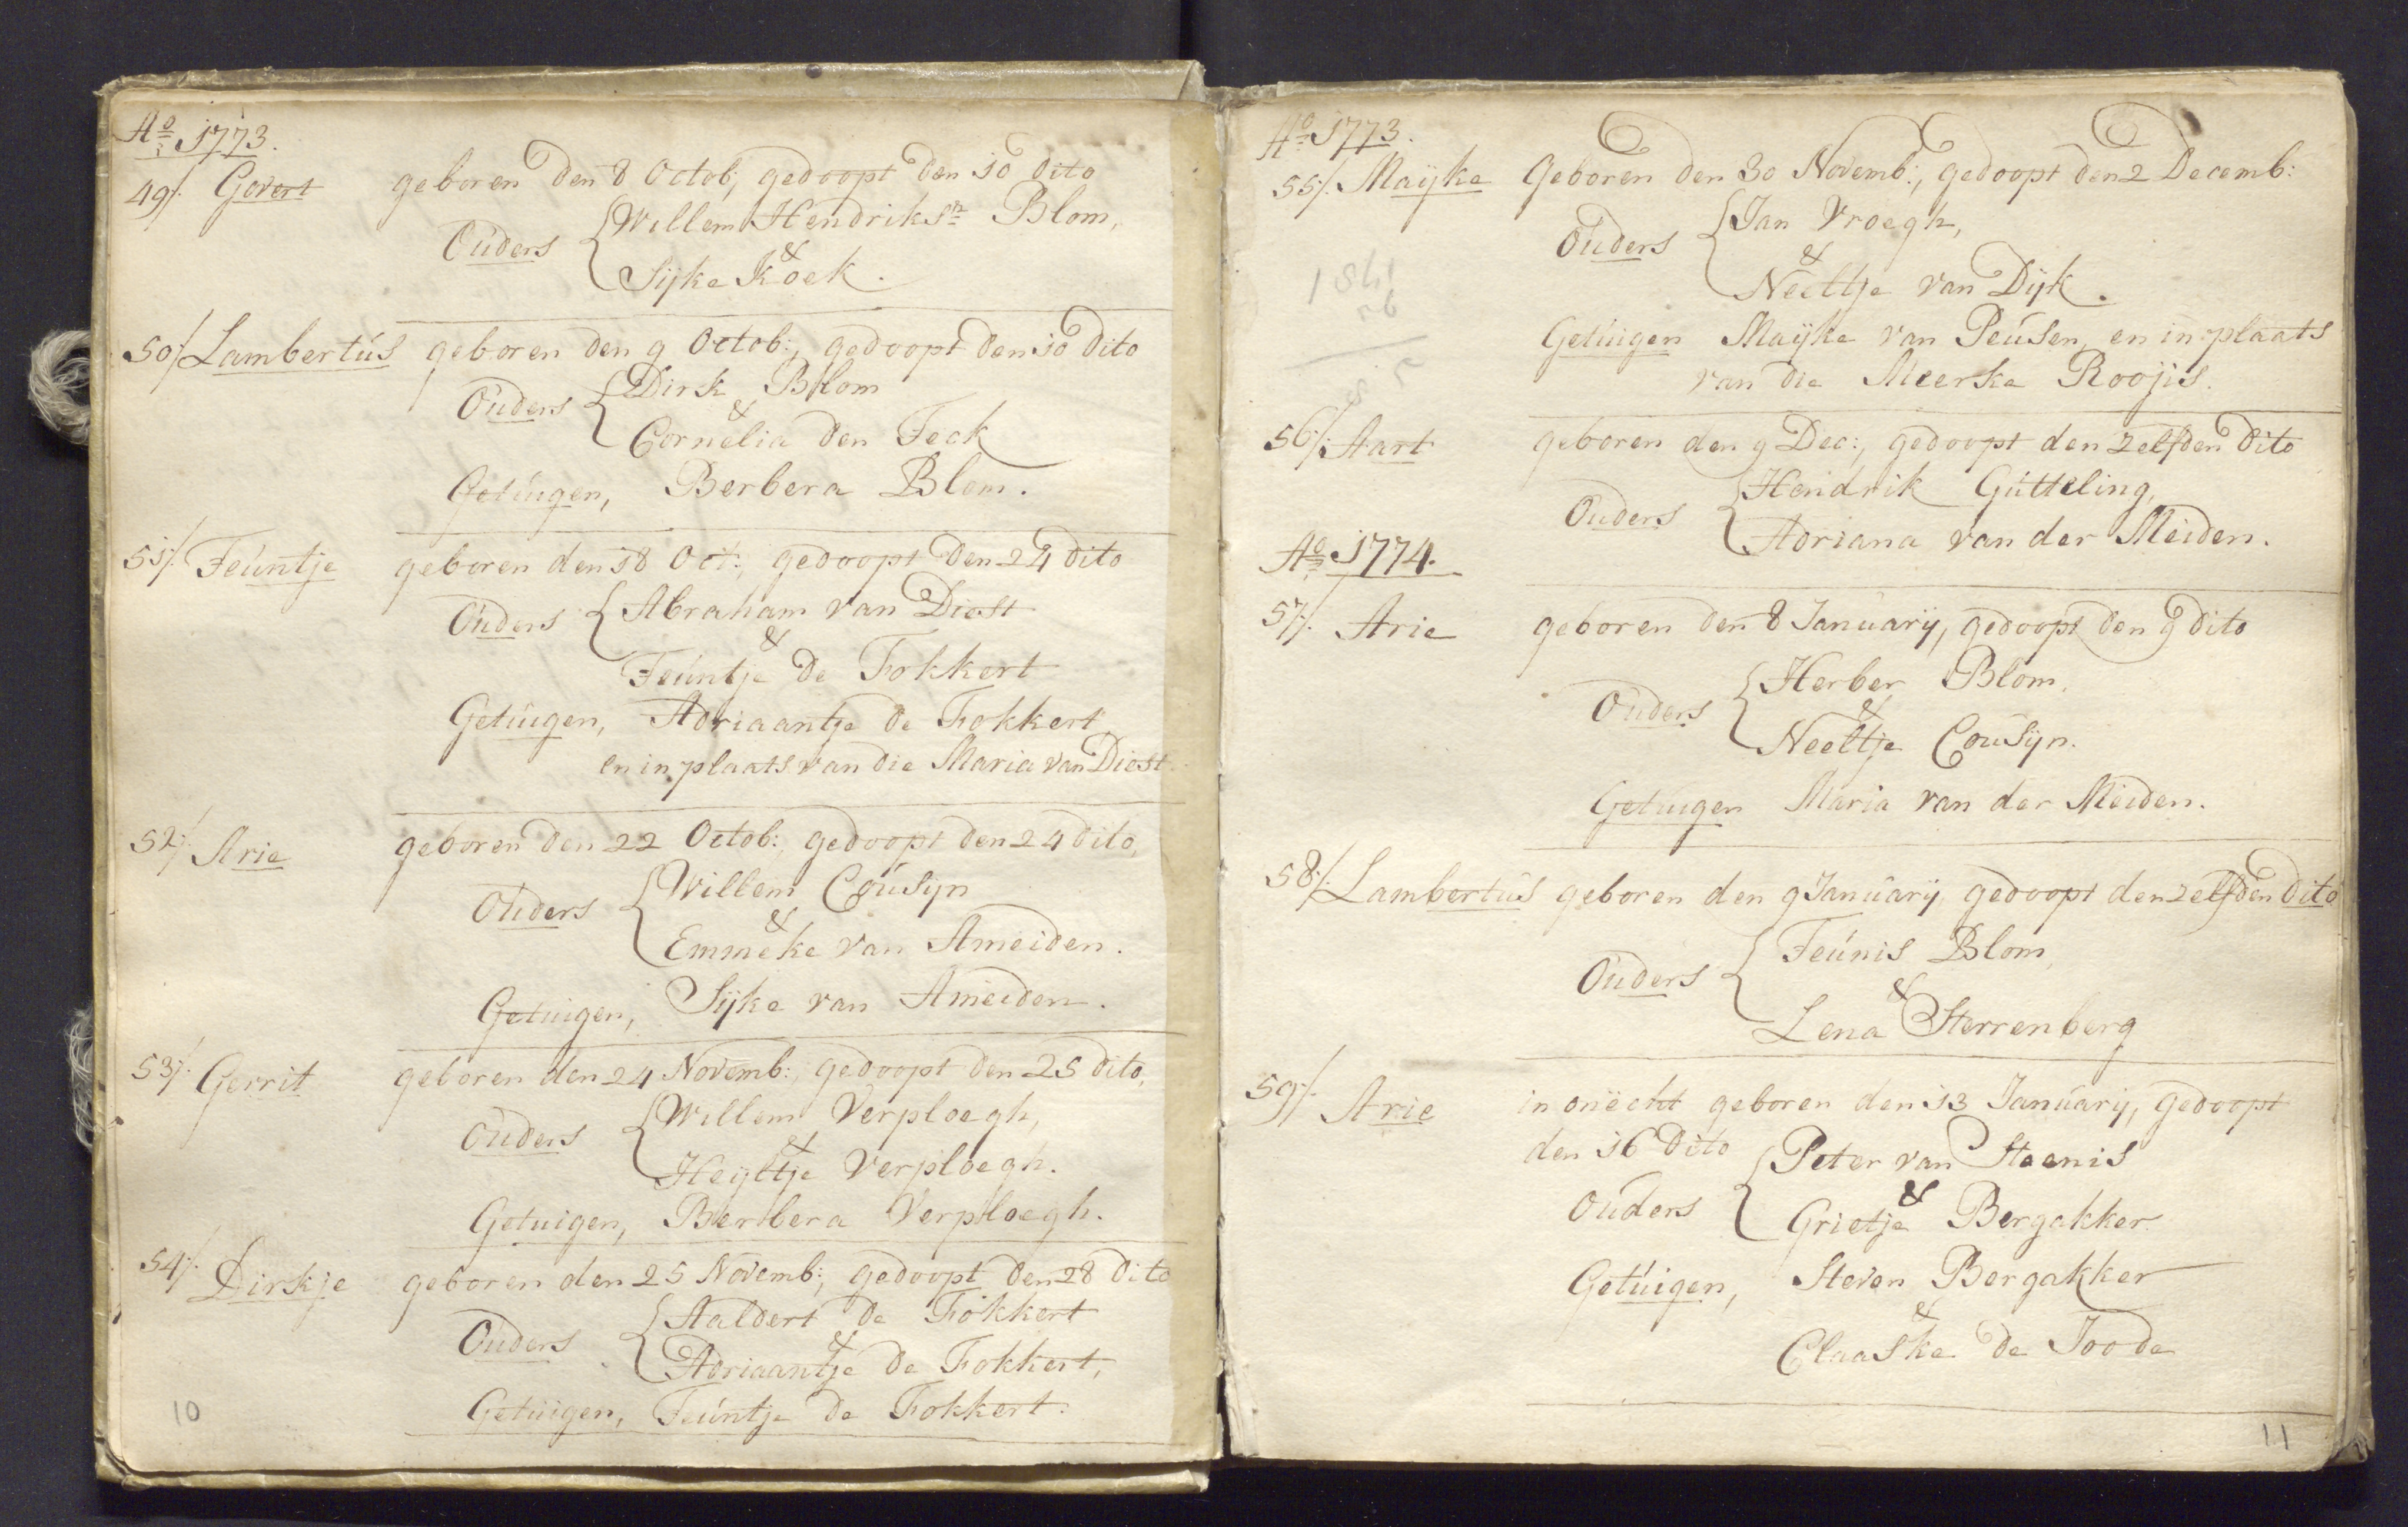 Ao 1773.
49/. Govert geboren den 8 Octob; gedoopt den 10 dito
Ouders { Willem Hendriksn Blom,
&
Sijke Koek.
50/. Lambertús geboren den 9 Octob:, gedoopt den 10 dito
Ouders { Dirk Blom
&
Cornelia den Teck
Getúigen, Berbera Blom.
51/. Teúntje geboren den 18 Oct:, gedoopt den 24 dito
Ouders { Abraham van Diest
&
Teúntje de Fokkert
Getúigen, Adriaantje de Fokkert
en in plaats van die Maria van Diest.
52/. Arie geboren den 22 Octob:, gedoopt den 24 dito,
Ouders { Willem Coúsijn
&
Emmeke van Ameiden.
Getuigen, Sijke van Ameiden.
53/. Gerrit geboren den 24 Novemb:, gedoopt den 25 dito,
Ouders { Willem Verploegh,
&
Heyltje Verploegh.
Getuigen, Berbera Verploegh.
54/. Dirkje geboren den 25 Novemb:, gedoopt den 28 dito
Ouders { Aaldert de Fokkert
&
Adriaantje de Fokkert,
Getúigen, Teúntje de Fokkert.
10
Ao 1773.
55/. Maijke Geboren den 30 Novemb:, gedoopt den 2 Decemb:
Ouders { Jan Vroegh,
&
Neeltje van Dijk.
Getúigen Maijke van Peúsen, en in plaats
van die Meerke Roojis.
56/. Aart geboren den 9 Dec:, gedoopt den zelfden dito
Ouders { Hendrik Gútteling,
Adriana van der Meiden.
Ao 1774.
57/. Arie geboren den 8 Januarij, gedoopt den 9 dito
Ouders { Herber Blom,
&
Neeltje Coúsijn.
Getuigen Maria van der Meiden.
58/. Lambertús geboren den 9 Januarij gedoopt den zelfden dito
Ouders { Teúnis Blom,
&
Lena Sterrenberg
59/. Arie in onëcht geboren den 13 Januarij, gedoopt
den 16 dito { Peter van Steenis
Ouders &
Grietje Bergakker
Getúigen, Steven Bergakker
&
Claaske de Joode
11